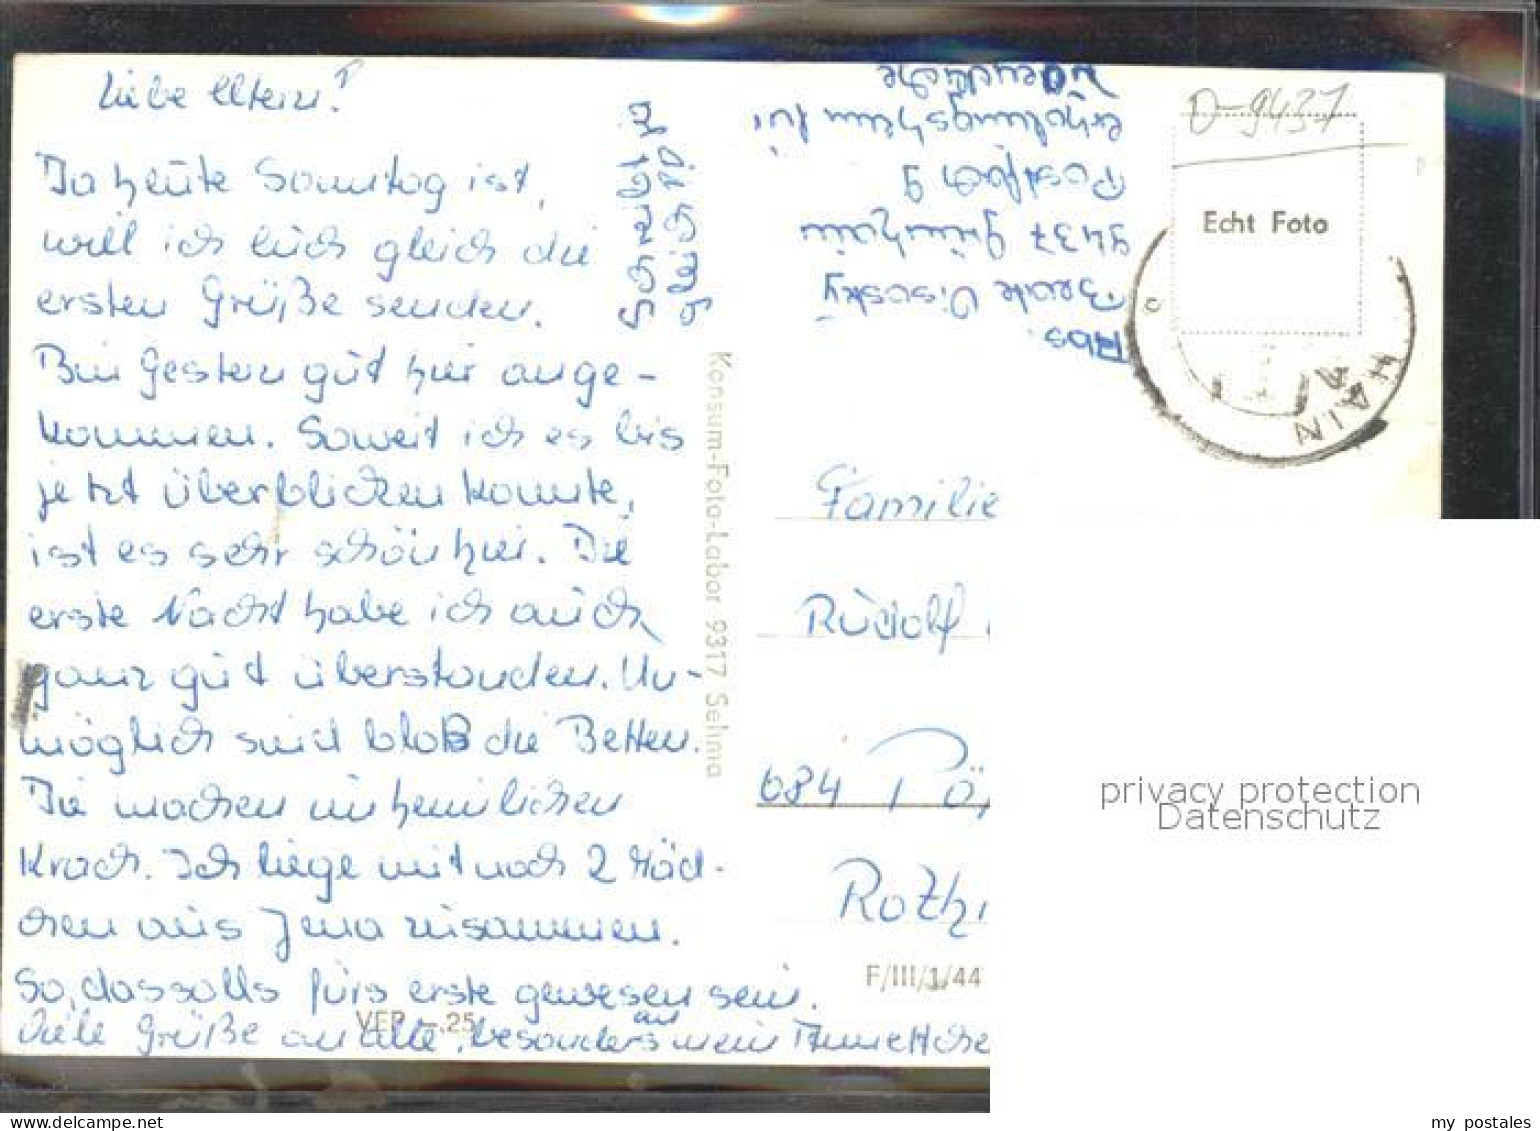 Liebe Eltern!
Da heute Sonntag ist,
will ich Euch gleich die
ersten Grüße senden.
Bin Gestern gut hier ange-
kommen. Soweit ich es bis
jetzt überblicken konnte,
ist es sehr schön hier. Die
erste Nacht habe ich auch
ganz gut überstanden. Un-
möglich sind bloß die Betten.
Die machen unheimlichen
Krach. Ich liege mit noch 2 Mäd-
chen aus Jena zusammen.
So, das solls fürs erste gewesen sein.
Viele Grüße an alle, besonders an mein Annettche
VEP -.25
Konsum-Foto-Labor 9317 Sehma
Abs.
Beate
9437 Grünhain
Postfach 9
Erholungsheim für
D-9437
Echt Foto
HAIN
Familie
Rudolf
684 Pö
Rothe
F/III/1/44
privacy protection
Datenschutz
www.ansichtskartenversand.com
my_postales